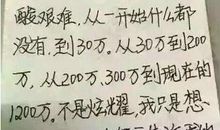 酸艰难,从一开始什么都
没有,到30万。从30万到200
万,从200万、300万到现在的
1200万。不是炫耀,我只是想